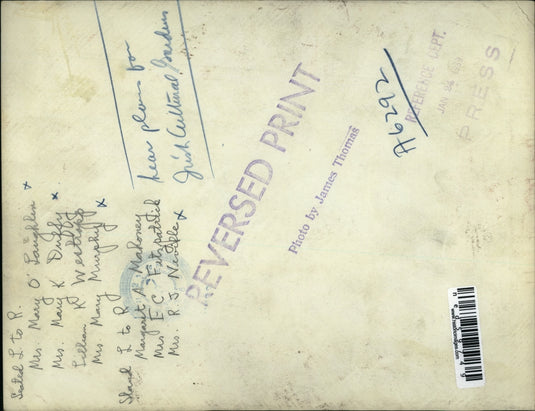 Seated L to R.
Mrs. Mary O'Laughlin x
Mrs. Mary K Duffy x
Lillian K Westropp
Mrs Mary Murphy x
Stand L to R
Margaret A. Mahoney
Mrs E C. Fitzpatrick
Mrs. R J
hear plans for
Irish Cultural Gardens
REVERSED PRINT
Photo by James Thomas
A6292
REFERENCE DEPT.
JAN
PRESS